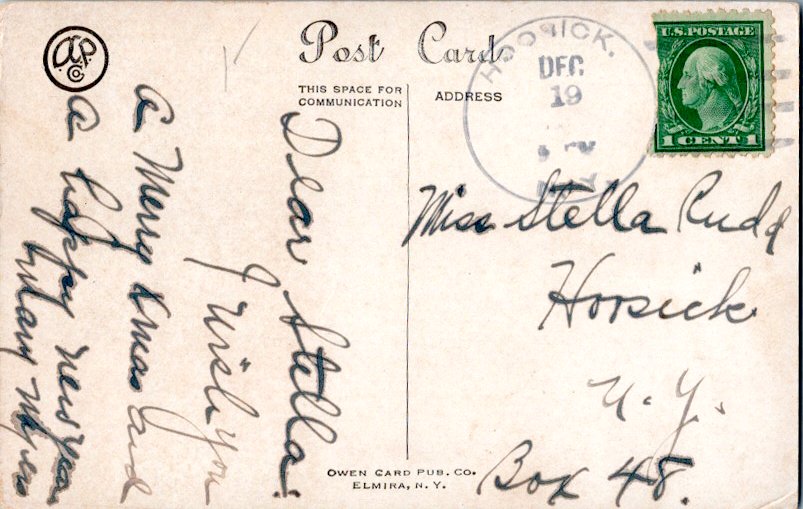 O.P.
Co.
Post Card.
THIS SPACE FOR
COMMUNICATION
ADDRESS
HOOSICK.
DEC
19
U.S. POSTAGE
1 CENT 1
Dear Stella.
I wish you
a Merry Xmas and
a happy new year
Mary Myers
Miss Stella Rudd
Hoosick
N. Y.
Box 48.
OWEN CARD PUB. CO.
ELMIRA, N. Y.